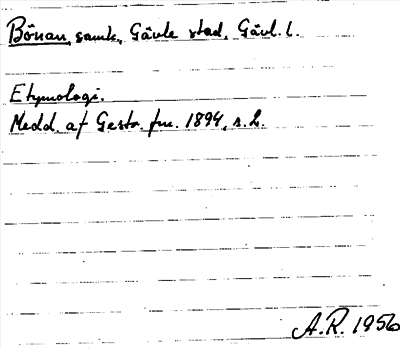 Bönan, samh., Gävle stad, Gävl. l.
Etymologi.
Medd. af Gestr. fm. 1894, s. 2.
A.R. 1956